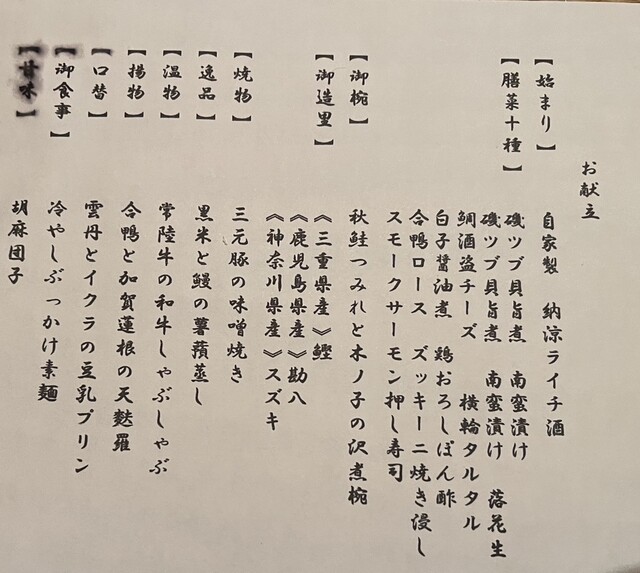 お献立
【始まり】 自家製 納涼ライチ酒
【膳菜十種】 磯ツブ貝旨煮 南蛮漬け
磯ツブ貝旨煮 南蛮漬け 落花生
鯛酒盗チーズ 横輪タルタル
白子醤油煮 鶏おろしぽん酢
合鴨ロース ズッキーニ焼き浸し
スモークサーモン押し寿司
【御椀】 秋鮭つみれと木ノ子の沢煮椀
【御造里】 《三重県産》鰹
《鹿児島県産》勘八
《神奈川県産》スズキ
【焼物】 三元豚の味噌焼き
【逸品】 黒米と鰻の薯蕷蒸し
【温物】 常陸牛の和牛しゃぶしゃぶ
【揚物】 合鴨と加賀蓮根の天麩羅
【口替】 雲丹とイクラの豆乳プリン
【御食事】 冷やしぶっかけ素麺
【甘味】 胡麻団子